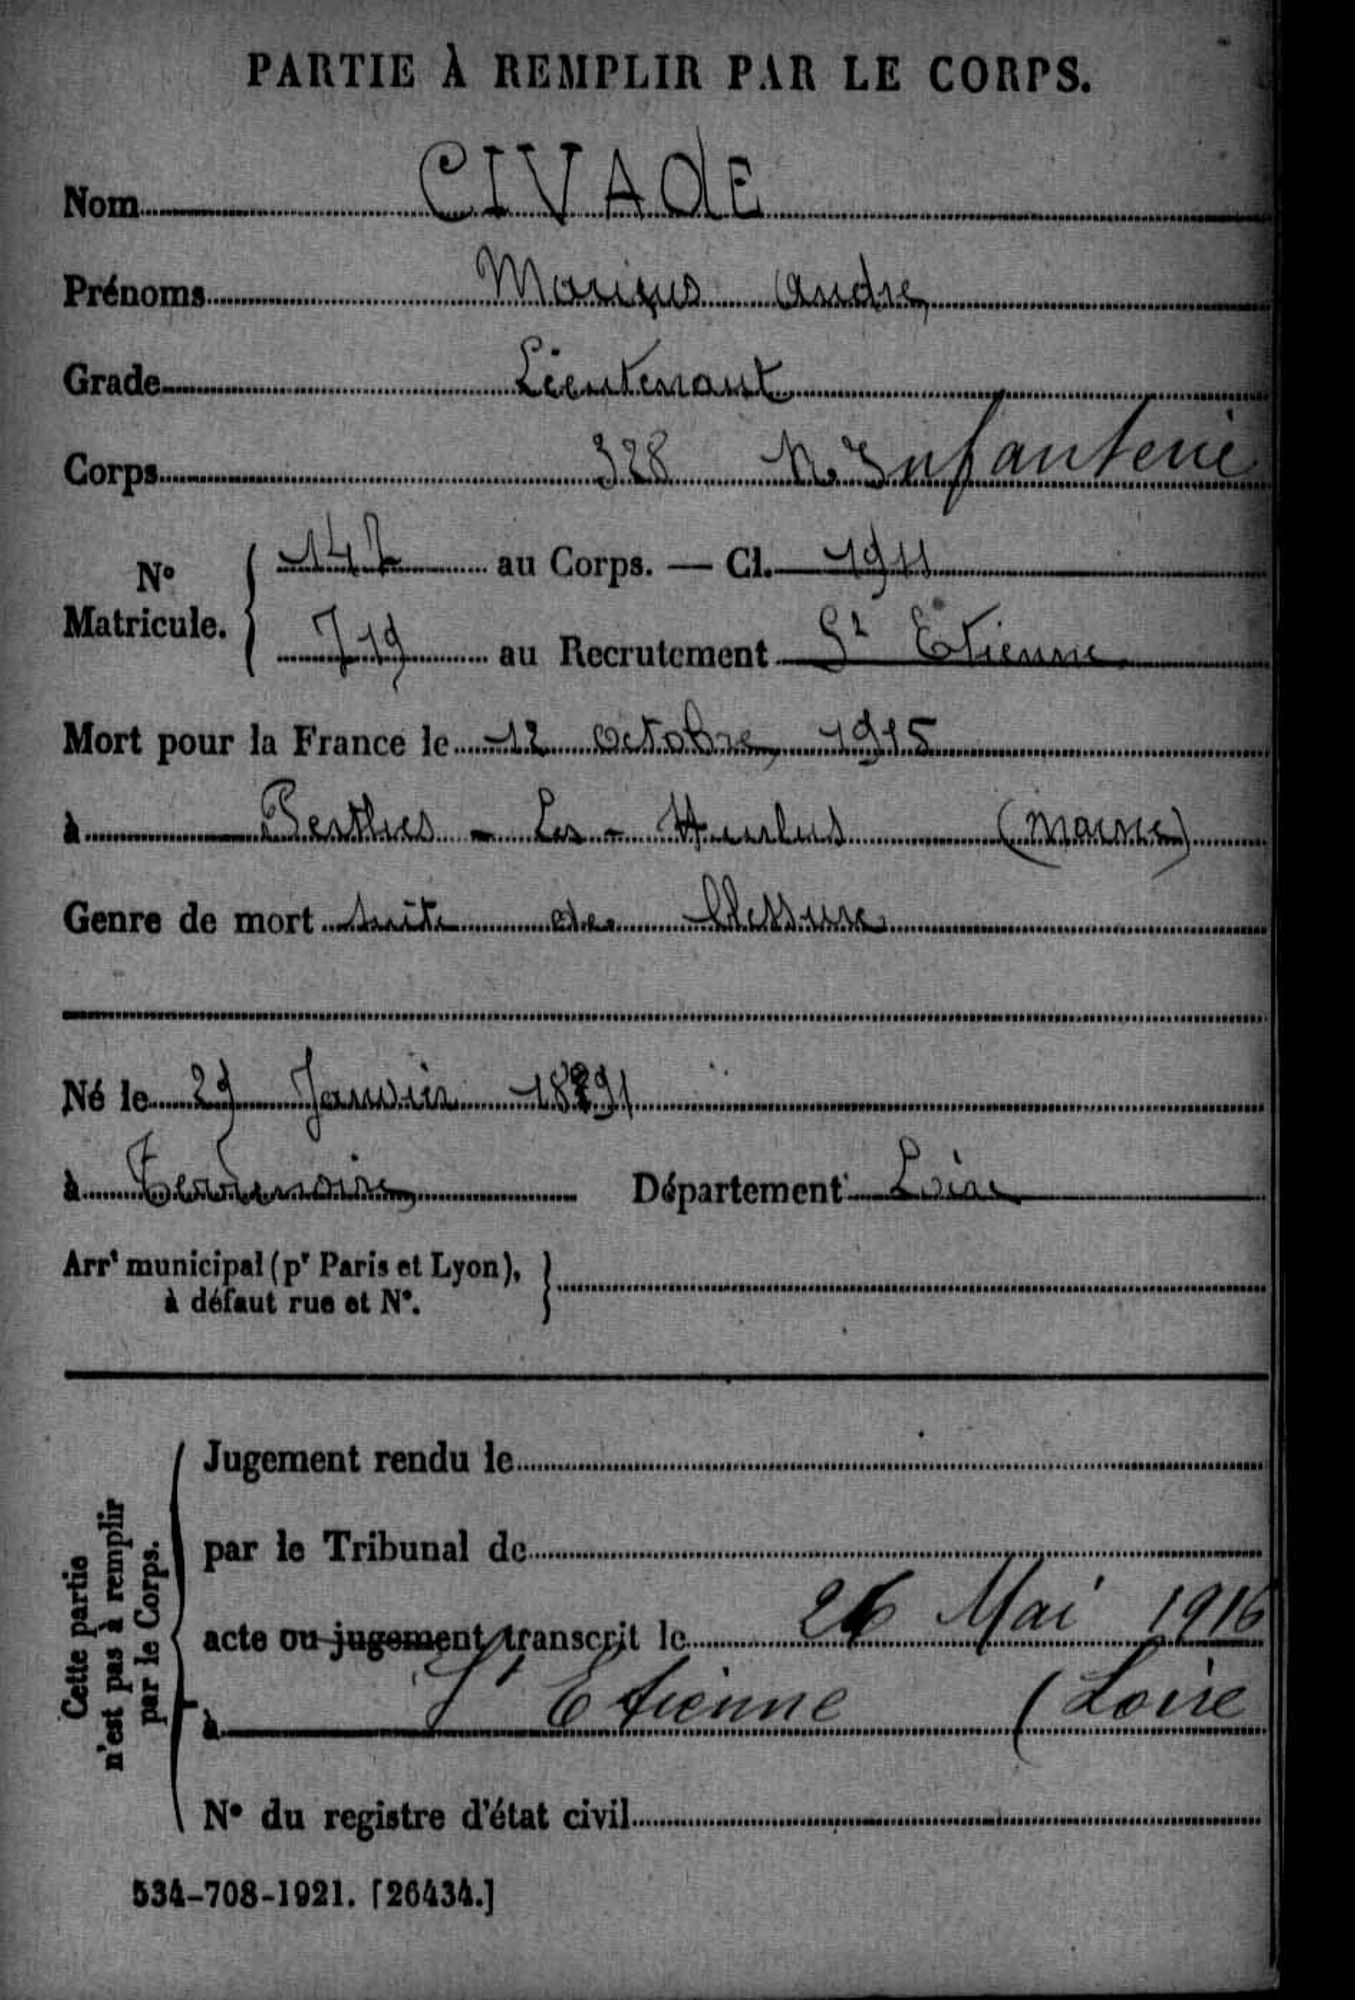 PARTIE À REMPLIR PAR LE CORPS.
Nom CIVADE
Prénoms Marius André
Grade Lieutenant
Corps 328 R. Infanterie
N° Matricule. 147 au Corps. — Cl. 1911
719 au Recrutement St Etienne
Mort pour la France le 12 octobre 1915
à Perthes - Les - Hurlus (Marne)
Genre de mort suite de blessure
Né le 29 Janvier 1891
à Terrenoire Département Loire
Arrt municipal (pr Paris et Lyon),
à défaut rue et N°.
Cette partie
n'est pas à remplir
par le Corps.
Jugement rendu le
par le Tribunal de
acte ou jugement transcrit le 26 Mai 1916
à St Etienne (Loire
N° du registre d'état civil
534-708-1921. [26434.]